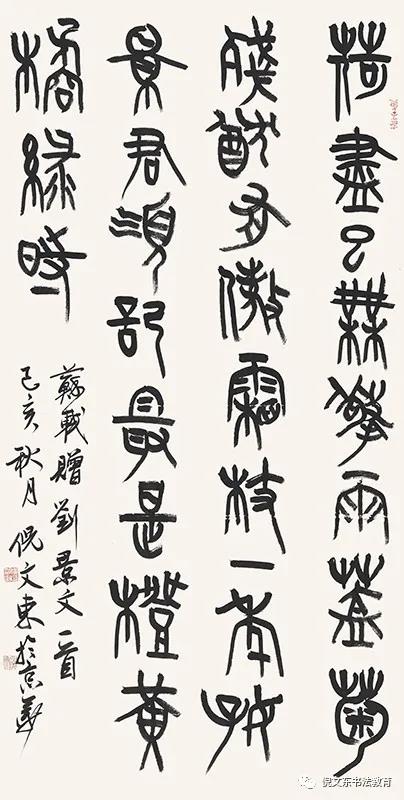 荷盡已無擎雨蓋菊
殘猶有傲霜枝一年好
景君須記最是橙黃
橘綠時
蘇軾贈劉景文一首
己亥秋月倪文東於京華
倪文东书法教育